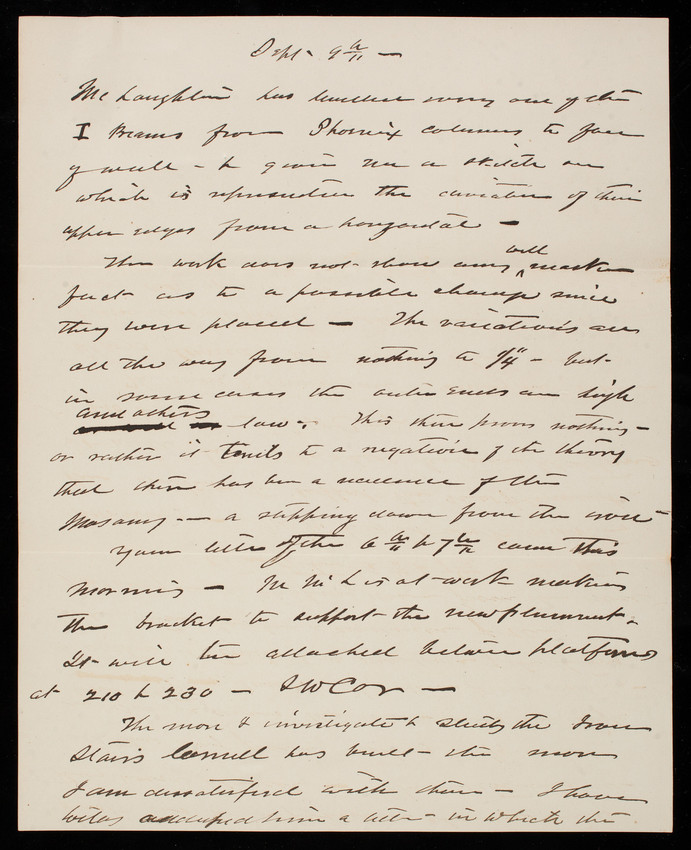 Sept - 9th —
McLaughlin has levelled every one of the
I Beams from Phoenix columns to face
of wall - he gives me a sketch on
which is represented the variation of their
upper edges from a horizontal —
This work does not show any
will
fact as to a possible change since
they were placed — The variations are
all the way from nothing to 1/4" - but
in some cases the outer ends are high
and others
low. This then proves nothing -
or rather it tends to a negation of the theory
that there has been a of the
Masonry - a slipping down from the iron
Your letter of the 6th & 7th came this
morning - Mr McL is at work making
the bracket to support the new
It will be attached below platform
at 210 & 230 - SW Cor —
The more I investigate & study the Iron
Stairs has built - the more
I am dissatisfied with them - I have
today addressed him a letter in which the